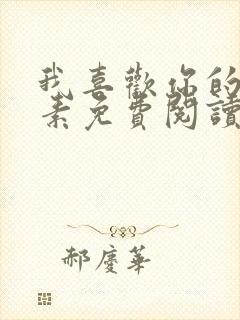 我喜歡你的
素免費閱讀
郝慶華